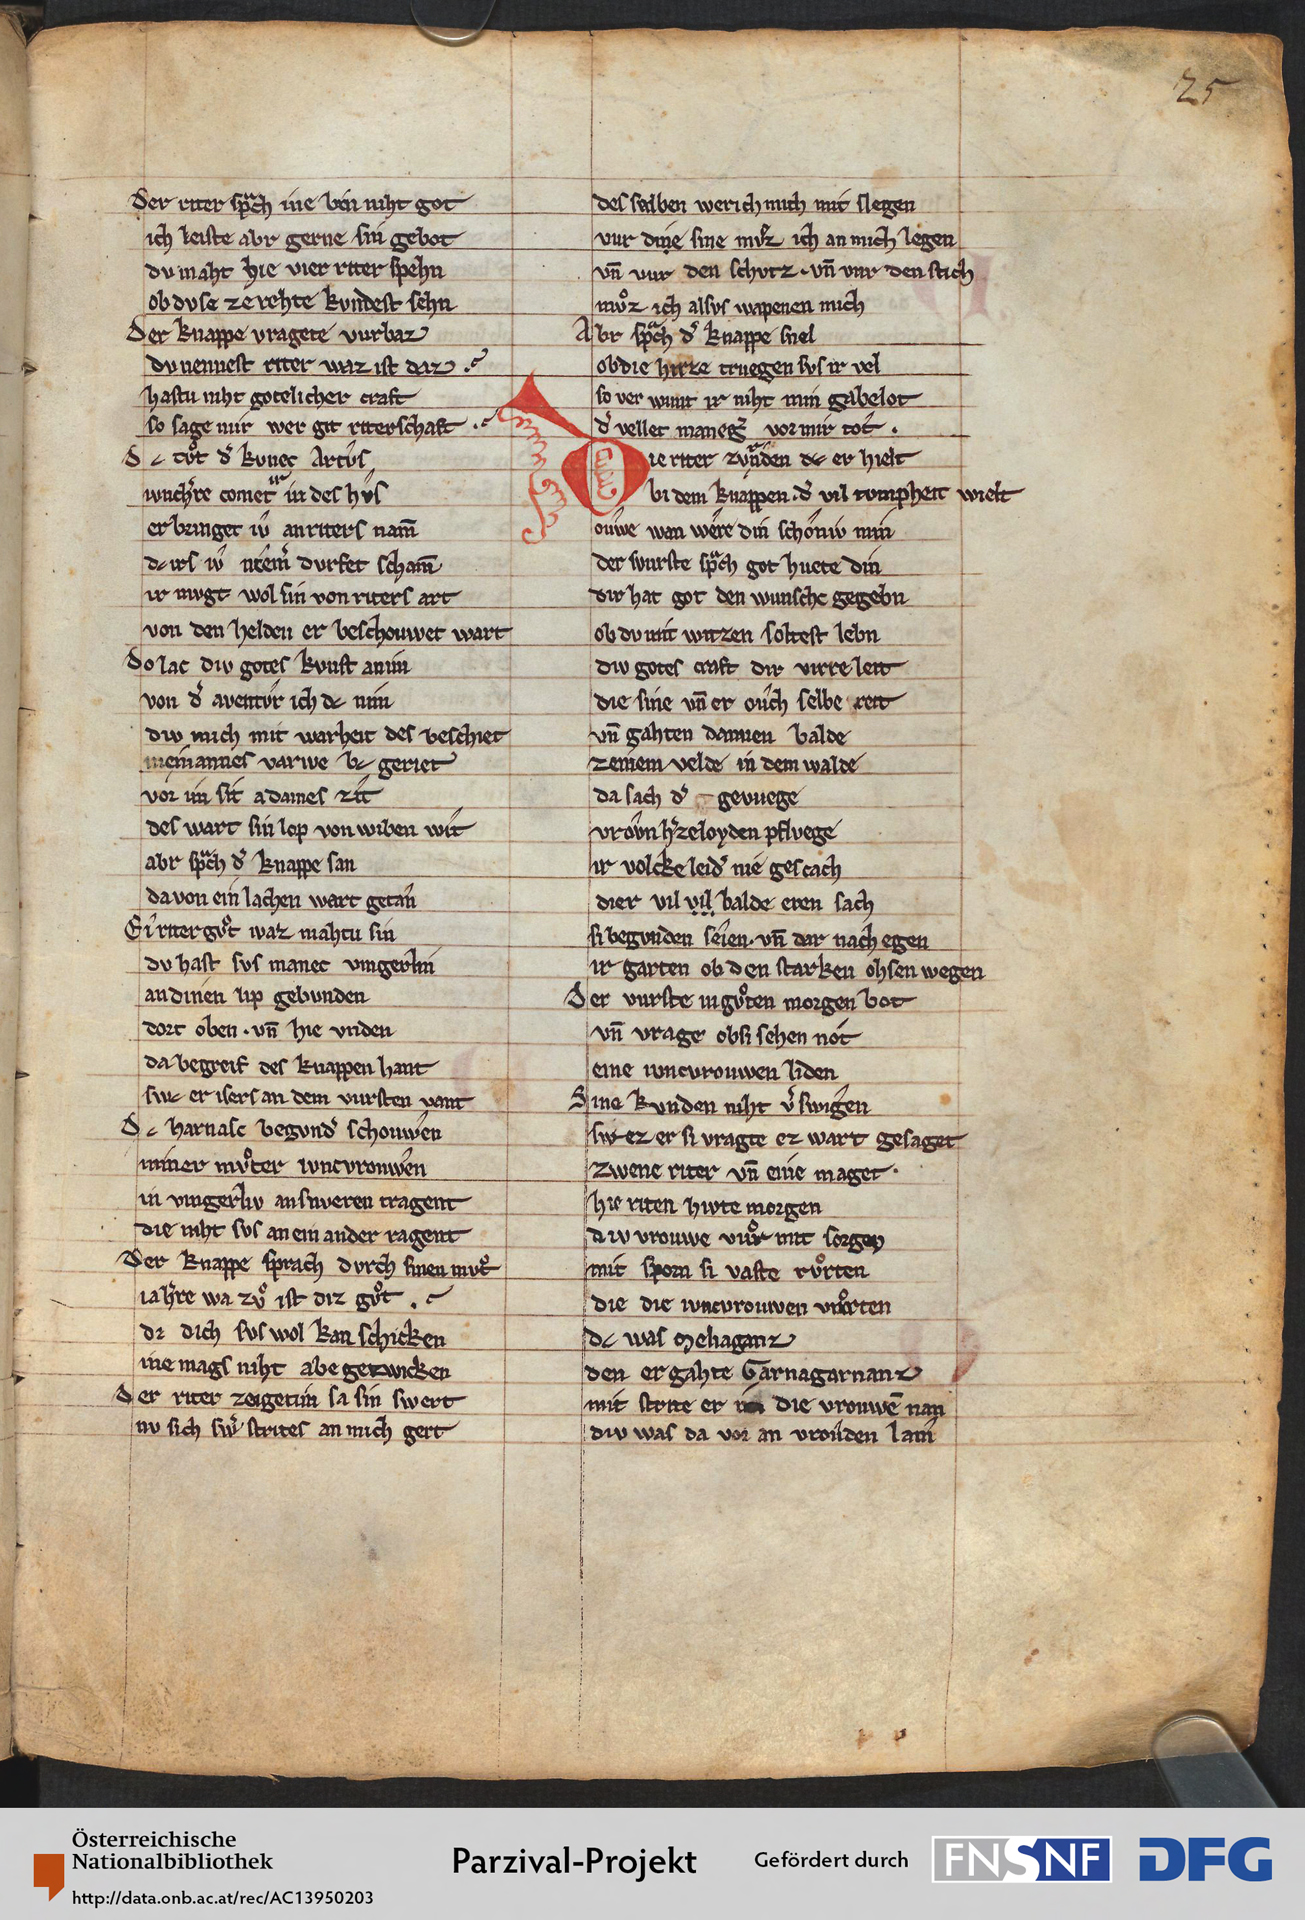 25
Der riter sp͛ch ine ben niht got
ich leiste abr gerne sin gebot
du maht hie vier riter spehn
ob duse ze rehte kundest sehn
Der knappe vragete vurbaz
du nennest riter waz ist daz .
hastu niht gotelicher craft
so sage mir wer git riterschaft .
Dc tuͦt d͛ kunec Artus
iunch͛re comet ir in des hvs
er bringet iv an riters nam̅
dc irs iv niem͛ durfet scham̅
ir mugt wol sin von riters art
von den helden er beschouwet wart
Do lac div gotes kunst an im
von d͛ aventur ich dc nim
div mich mit warheit des beschiet
nie mannes varwe bc geriet
vor im sit adames zit
des wart sin lop von wiben wit
abr sp͛ch d͛ knappe san
da von ein lachen wart getan
Ei riter guͦt waz mahtu sin
du hast sus manec vingerlin
an dinen lip gebunden
dort oben . vn̅ hie unden
da begreif des knappen hant
swc er isers an dem vursten vant
Dc harnasc begund͛ schouwen
miner muͦter iuncvrouwen
in vingerliv an snueren tragent
die niht sus an ein ander ragent
Der knappe sprach durch sinen muͦt
iah͛re wa zuͦ ist diz guͦt .
dz dich sus wol kan schicken
ine mags niht abe gezwicken
Der riter zeiget im sa sin swert
nu sich sw͛ strites an mich gert
des selben wer ich mich mit slegen
vur die sine muͦz ich an mich legen
vn̅ vur den schutz . vn̅ vur den stich
muͦz ich alsus wapenen mich
Abr sp͛ch d͛ knappe snel
ob die hirze truegen sus ir vel
so ver wunt ir niht min gabelot
d͛ vellet maneg͛ vor mir tot .
Die riter zurnden dc er hielt
bi dem knappen . d͛ vil tumpheit wielt
ouwe wan were din schoniv min
der vurste sp͛ch got huete din
dir hat got den wunsche gegebn
ob du mit witzen soltest lebn
div gotes craft dir virre leit
die sine vn̅ er ouch selbe reit
vn̅ gahten dannen balde
zeinem velde in dem walde
da sach d͛ gevuege
vrouͦn h͛zeloyden pfluege
ir volcke leid͛ nie gescach
die er vil vil balde eren sach
si begunden seien . vn̅ dar nach egen
ir garten ob den starken ohsen wegen
Der vurste in guͦten morgen bot
vn̅ vrage ob si sehen not
eine iuncvrouwen liden
Sine kunden niht v͛swigen
swez er si vragte ez wart gesaget
zwene riter vn̅ eine maget .
hie riten hivte morgen
div vrouwe vuͦr mit sorgen
mit sporn si vaste ruͦrten
die die iuncvrouwen vuͦrten
dc was Meliaganz
den ergahte Garnagarnanz
mit strite er im die vrouwe̅ nan
div was da vor an vrouden lam
Österreichische
Nationalbibliothek
http://data.onb.ac.at/rec/AC13950203
Parzival-Projekt
Gefördert durch
FNSNF
DFG